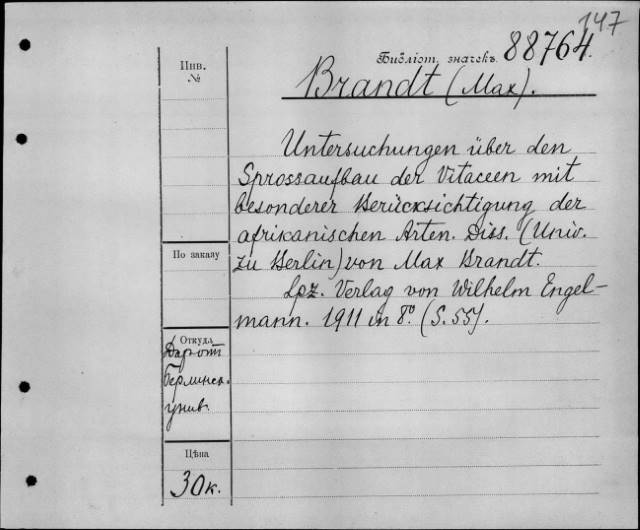 147
Библіот. значекъ 88764.
Инв.
№
Brandt (Max).
Untersuchungen über den
Sprossaufbau der Vitaceen mit
besonderer Berücksichtigung der
afrikanischen Arten. Diss. (Univ.
zu Berlin) von Max Brandt.
Lpz. Verlag von Wilhelm Engel-
mann. 1911 in 8º. (S. 55).
По заказу
Откуда
Дар от
Берлинск.
унив.
Цѣна
30к.